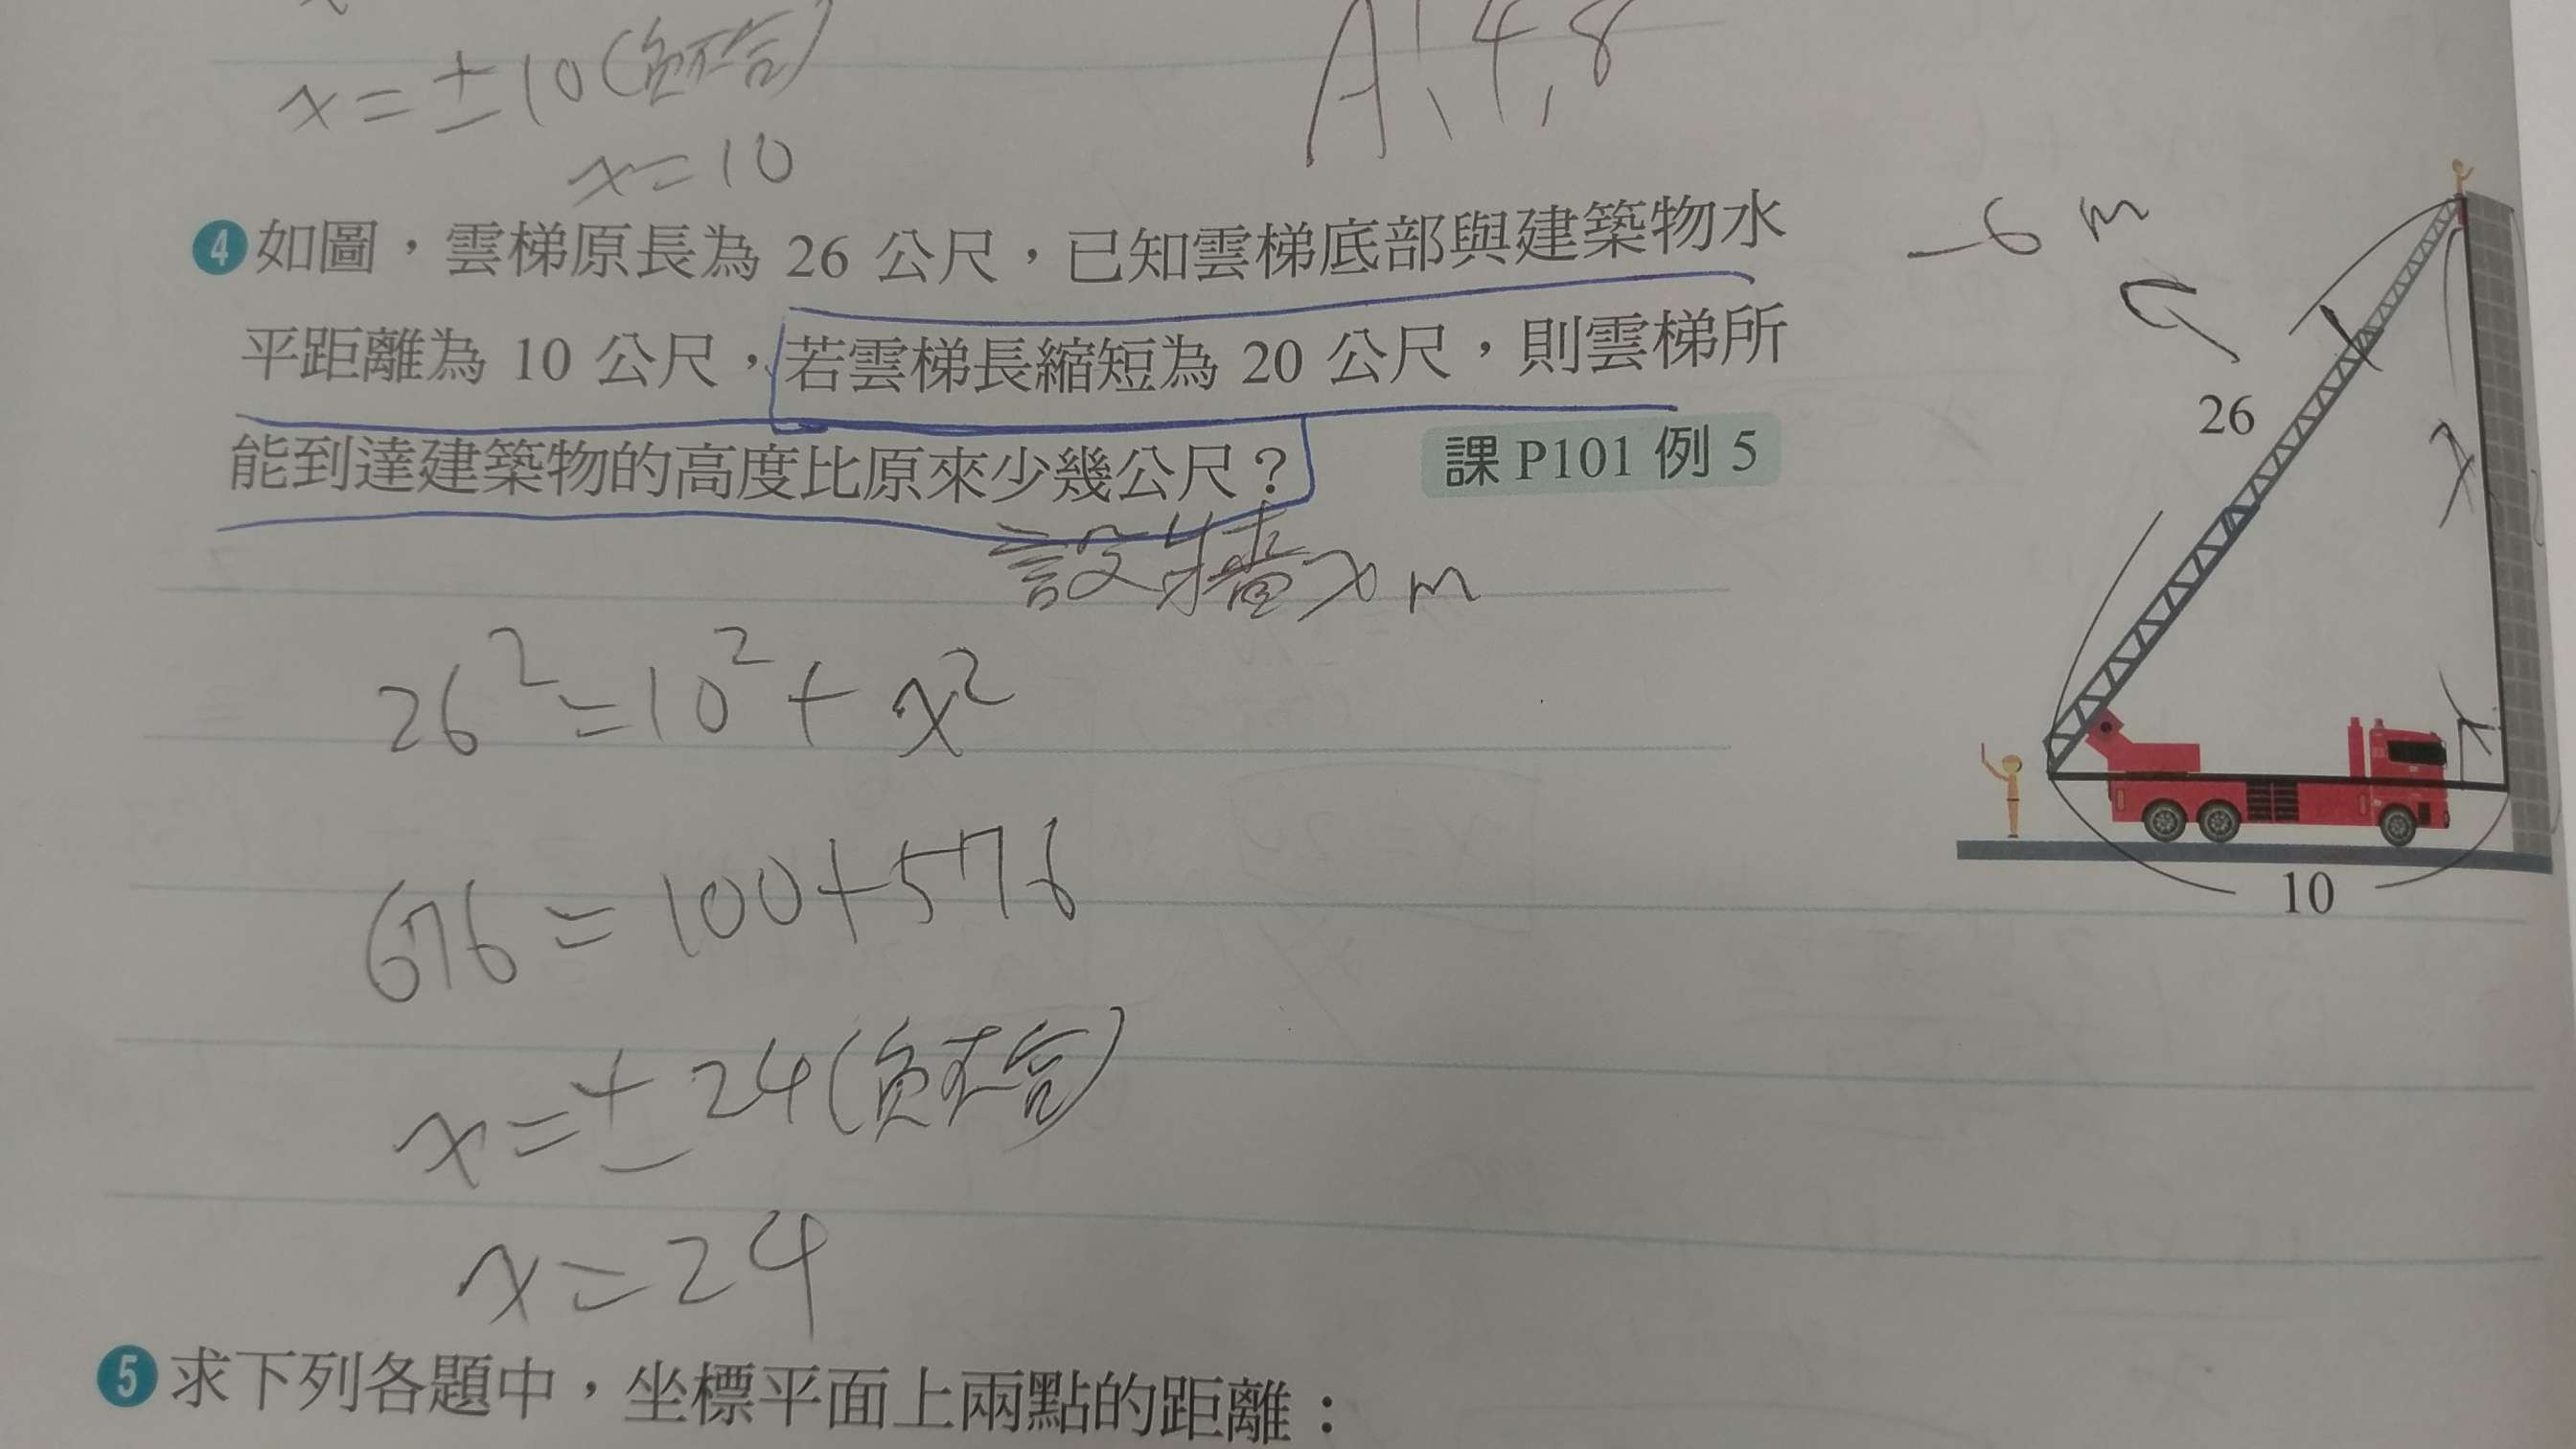 x=±10(負不合)
x=10
A:4,8
4 如圖，雲梯原長為 26 公尺，已知雲梯底部與建築物水
平距離為 10 公尺，若雲梯長縮短為 20 公尺，則雲梯所
能到達建築物的高度比原來少幾公尺？
課 P101 例 5
設牆x m
-6 m
26
x
10
26²=10²+x²
676=100+576
x=±24(負不合)
x=24
5 求下列各題中，坐標平面上兩點的距離：